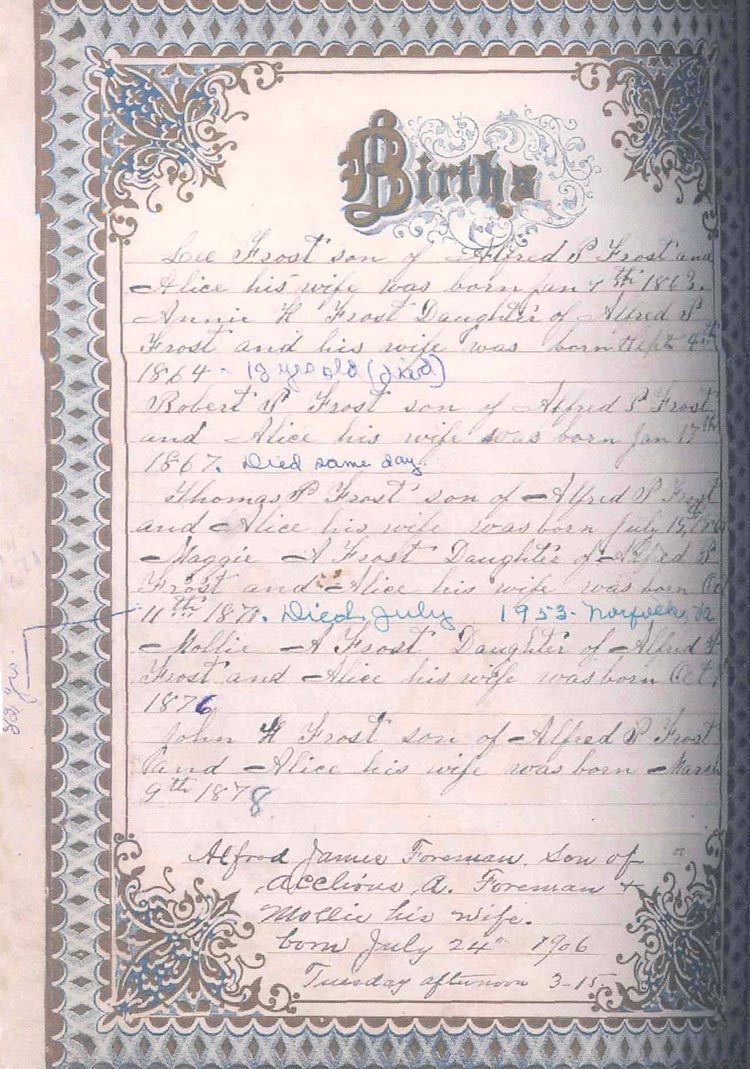 Births
Lee Frost son of Alfred P Frost and
Alice his wife was born Jan 9th 1863.
Annie H Frost Daughter of Alfred P
Frost and his wife was born Sept 4th
1864 - 13 yrs old (died)
Robert P Frost son of Alfred P Frost
and Alice his wife was born Jan 17th
1867. Died same day.
Thomas P Frost son of Alfred P Frost
and Alice his wife was born July 15th
Maggie A Frost Daughter of Alfred P
Frost and Alice his wife was born Oct
11th 1871. Died July 1953 - Norfolk, Va
Mollie A Frost Daughter of Alfred P
Frost and Alice his wife was born Oct
1876
John H Frost son of Alfred P Frost
and Alice his wife was born March
9th 1878
Alfred James Foreman, Son of
A. Foreman +
Mollie his wife.
born July 24th 1906
Tuesday afternoon 3-15
yrs.